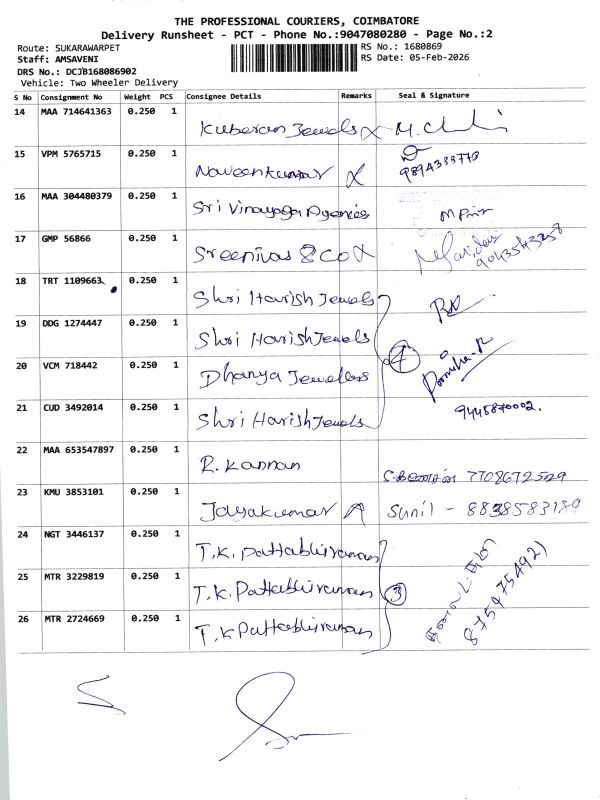 THE PROFESSIONAL COURIERS, COIMBATORE
Delivery Runsheet - PCT - Phone No.:9047080280 - Page No.:2
Route: SUKARAWARPET
Staff: AMSAVENI
DRS No.: DCJB168086902
Vehicle: Two Wheeler Delivery
RS No.: 1680869
RS Date: 05-Feb-2026
S No Consignment No Weight PCS Consignee Details Remarks Seal & Signature
14 MAA 714641363 0.250 1 Kuberan Jewels
15 VPM 5765715 0.250 1 Naveenkumar 9894333773
16 MAA 304480379 0.250 1 Sri Vinayaga Agencies
17 GMP 56866 0.250 1 Sreenivas & Co
18 TRT 1109663 0.250 1 Shri Harish Jewels
19 DDG 1274447 0.250 1 Shri Harish Jewels
20 VCM 718442 0.250 1 Dhanya Jewellers 4
21 CUD 3492014 0.250 1 Shri Harish Jewels 9445870002.
22 MAA 653547897 0.250 1 R. Kannan 7708672529
23 KMU 3853101 0.250 1 Jayakumar Sunil - 8838583189
24 NGT 3446137 0.250 1 T.K. Pattabhiraman
25 MTR 3229819 0.250 1 T.K. Pattabhiraman 3
26 MTR 2724669 0.250 1 T.K Pattabhiraman 8754754921